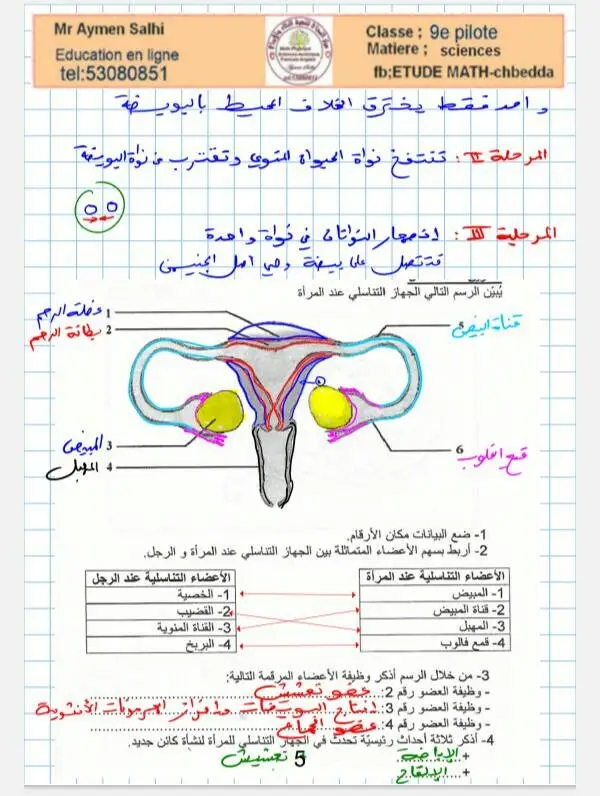 Mr Aymen Salhi
Education en ligne
tel:53080851
Classe ; 9e pilote
Matiere ; sciences
fb;ETUDE MATH-chbedda
واحد فقط يخترق الغلاف المحيط بالبويضة
المرحلة II : تنتفخ نواة الحيوان المنوي وتقترب من نواة البويضة
المرحلة III : انصهار النواتان في نواة واحدة
فتتحصل على بيضة وهي أصل الجنين
يُبَيّن الرسم التالي الجهاز التناسلي عند المرأة
عضلة الرحم 1
بطانة الرحم 2
5 قناة المبيض
المبيض 3
المهبل 4
6 قمع فالوب
1- ضع البيانات مكان الأرقام.
2- أربط بسهم الأعضاء المتماثلة بين الجهاز التناسلي عند المرأة و الرجل.
الأعضاء التناسلية عند المرأة
الأعضاء التناسلية عند الرجل
1- المبيض
1- الخصية
2- قناة المبيض
2- القضيب
3- المهبل
3- القناة المنوية
4- قمع فالوب
4- البربخ
3- من خلال الرسم أذكر وظيفة الأعضاء المرقمة التالية:
- وظيفة العضو رقم 2: عضو تعشيش
- وظيفة العضو رقم 3: إنتاج البويضات وإفراز الهرمونات الأنثوية
- وظيفة العضو رقم 4: عضو الجماع
4- أذكر ثلاثة أحداث رئيسيّة تحدث في الجهاز التناسلي للمرأة لنشأة كائن جديد.
+ الإباضة
5 تعشيش
+ الإلقاح